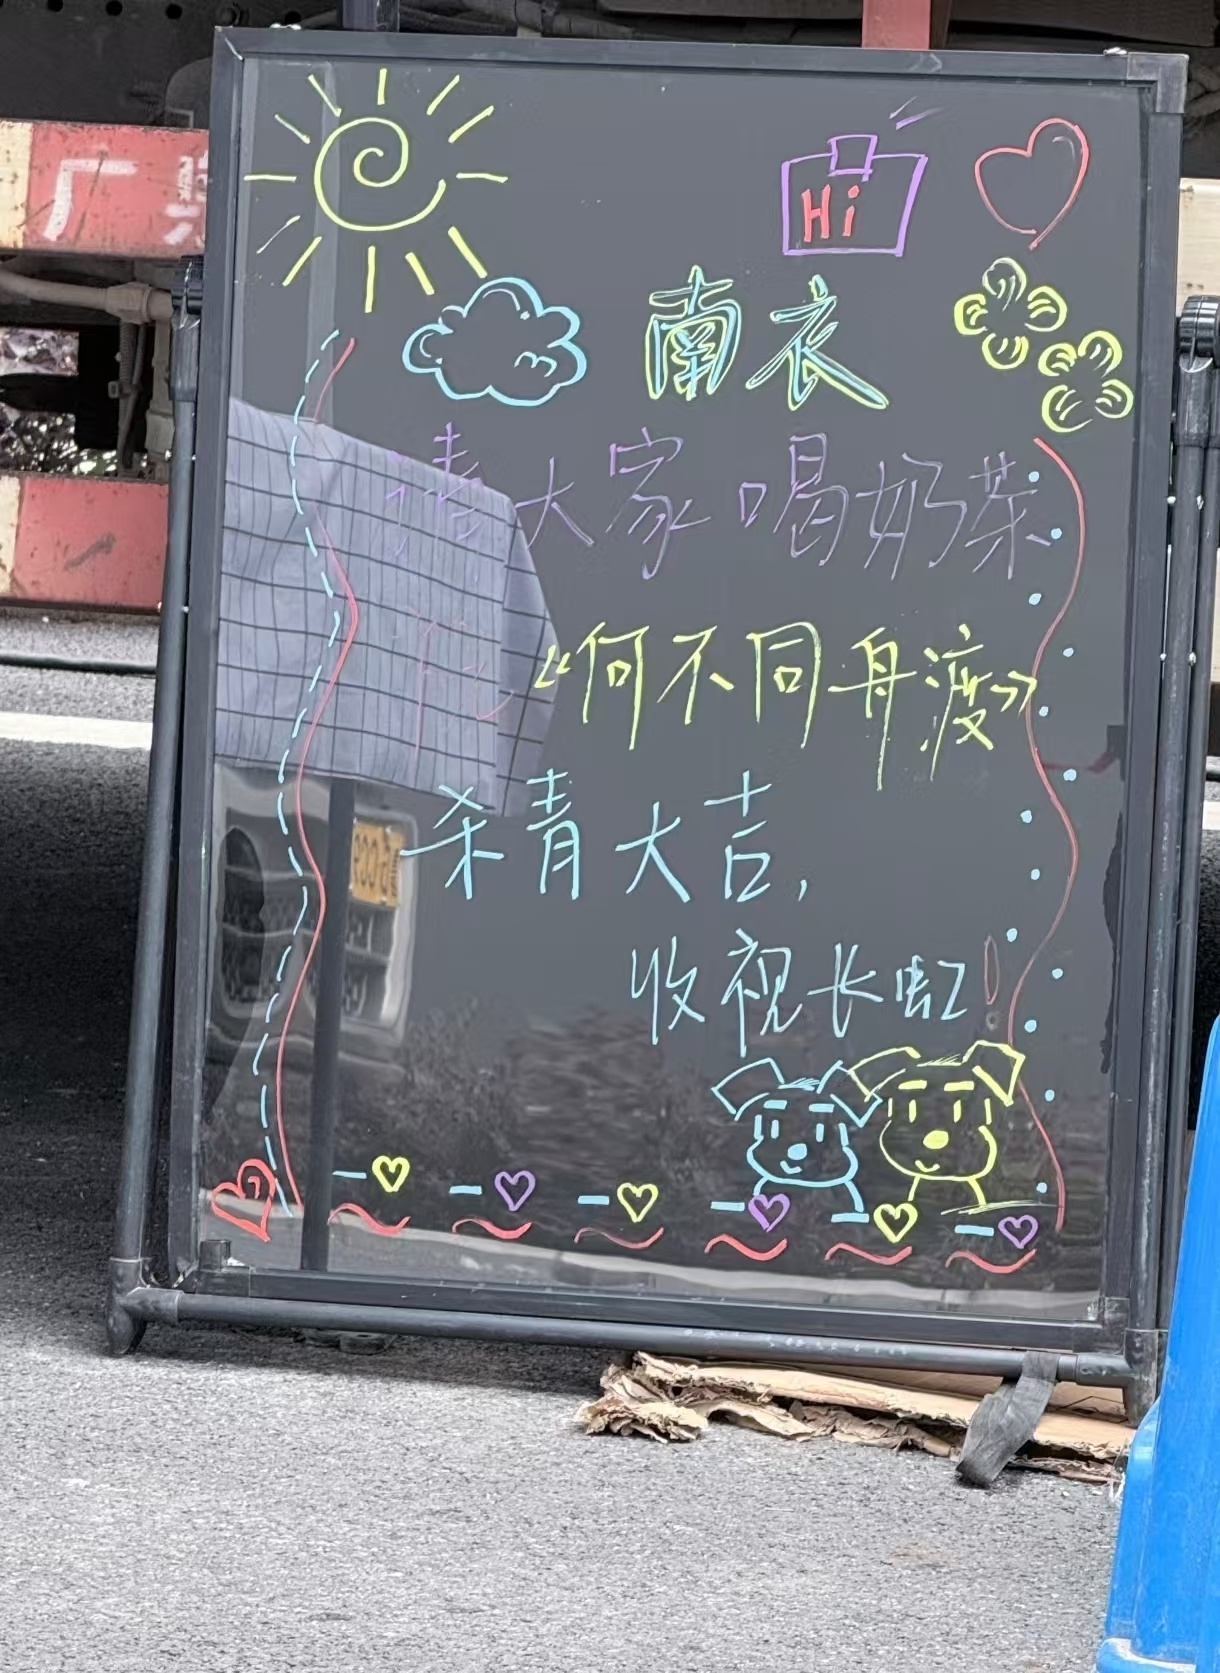 Hi
南衣
请大家喝奶茶
祝《何不同舟渡》
杀青大吉,
收视长虹!